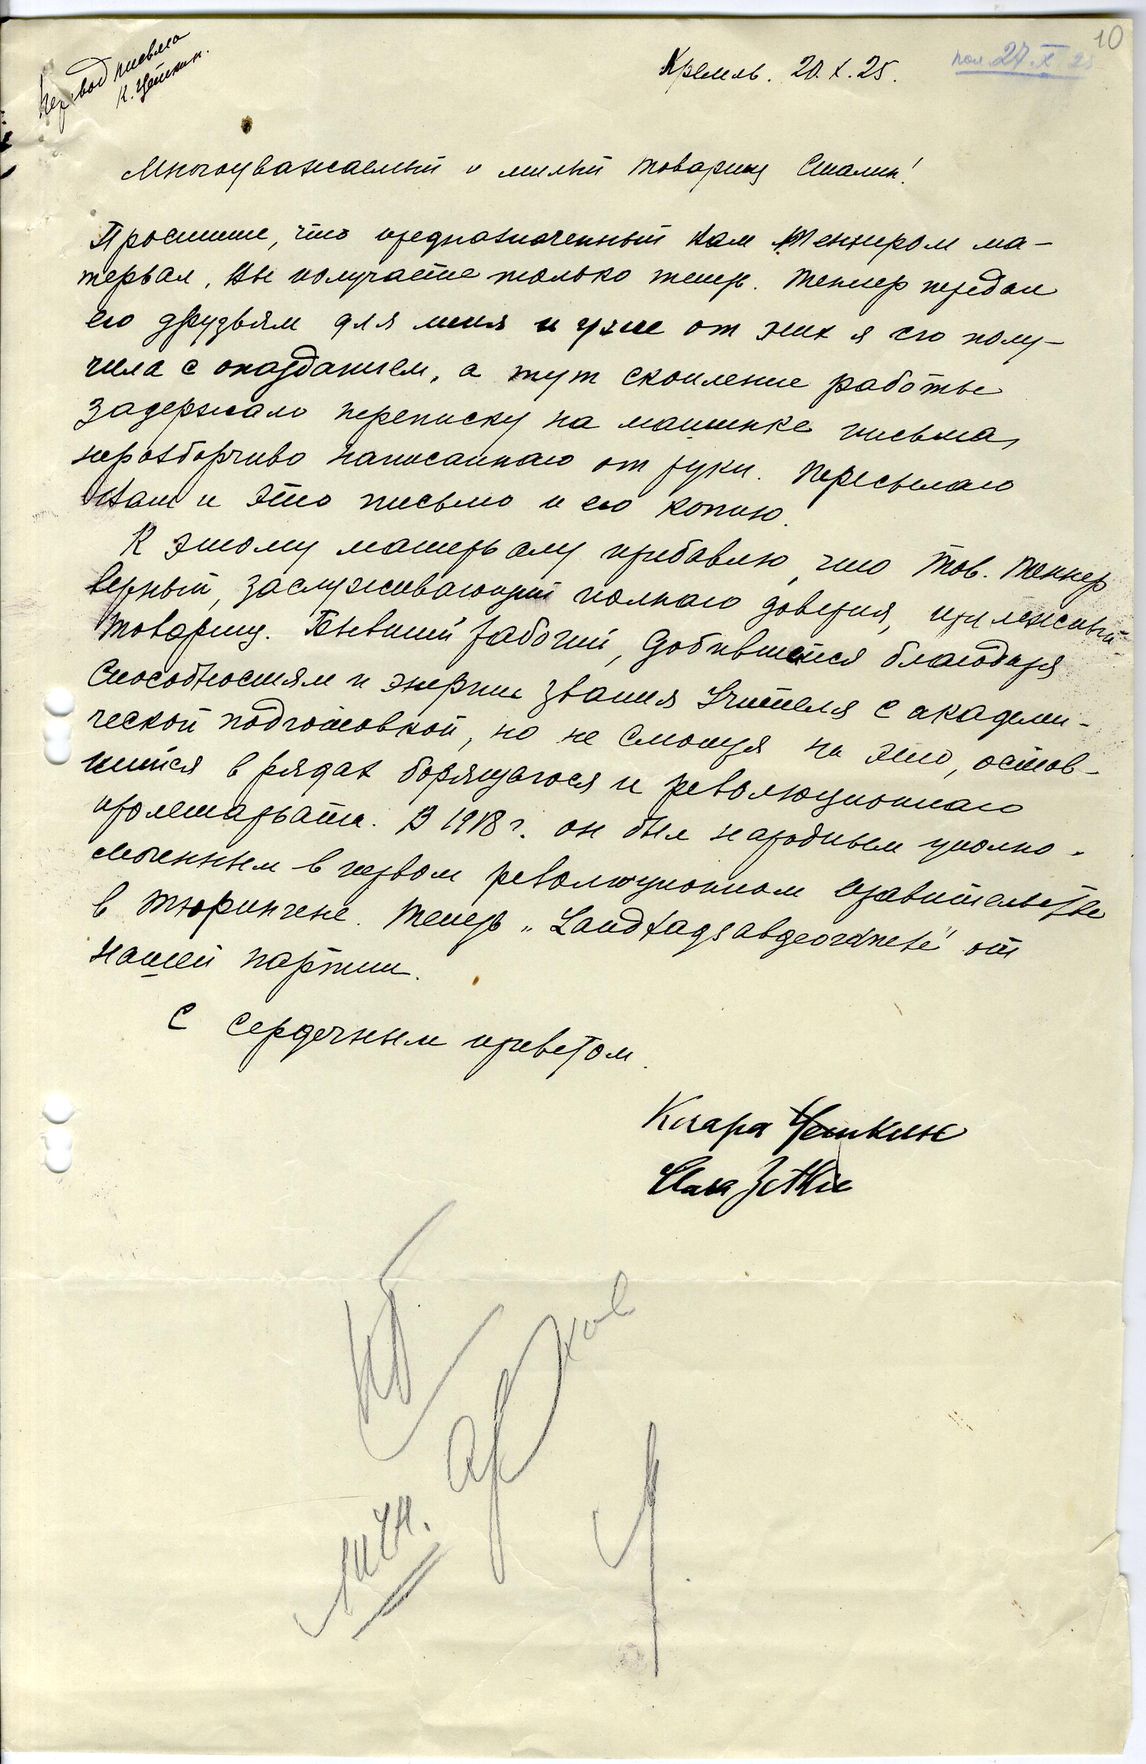 10
Перевод письма
К. Цеткин.
Кремль. 20.X.25.
пол. 27.X 25
Многоуважаемый и милый товарищ Сталин!
Простите, что предназначенный Вам Теннером ма-
терьял, Вы получаете только теперь. Теннер передал
его друзьям для меня и уже от них я его полу-
чила с опозданием, а тут скопление работы
задержало переписку на машинке письма,
неразборчиво написанного от руки. Пересылаю
Вам и это письмо и его копию.
К этому матерьялу прибавлю, что тов. Теннер
верный, заслуживающий полного доверия, прилежный
товарищ. Бывший рабочий, добившийся благодаря
способностям и энергии звания учителя с академи-
ческой подготовкой, но не смотря на это, остав-
шийся в рядах борящагося и революционнаго
пролетарьата. В 1918 г. он был народным уполно-
моченным в первом революционном правительстве
в Тюрингене. Теперь „Landtagsabgeordnete" от
нашей партии.
С сердечным приветом.
Клара Цеткин
Clara Zetkin
архив
личн.